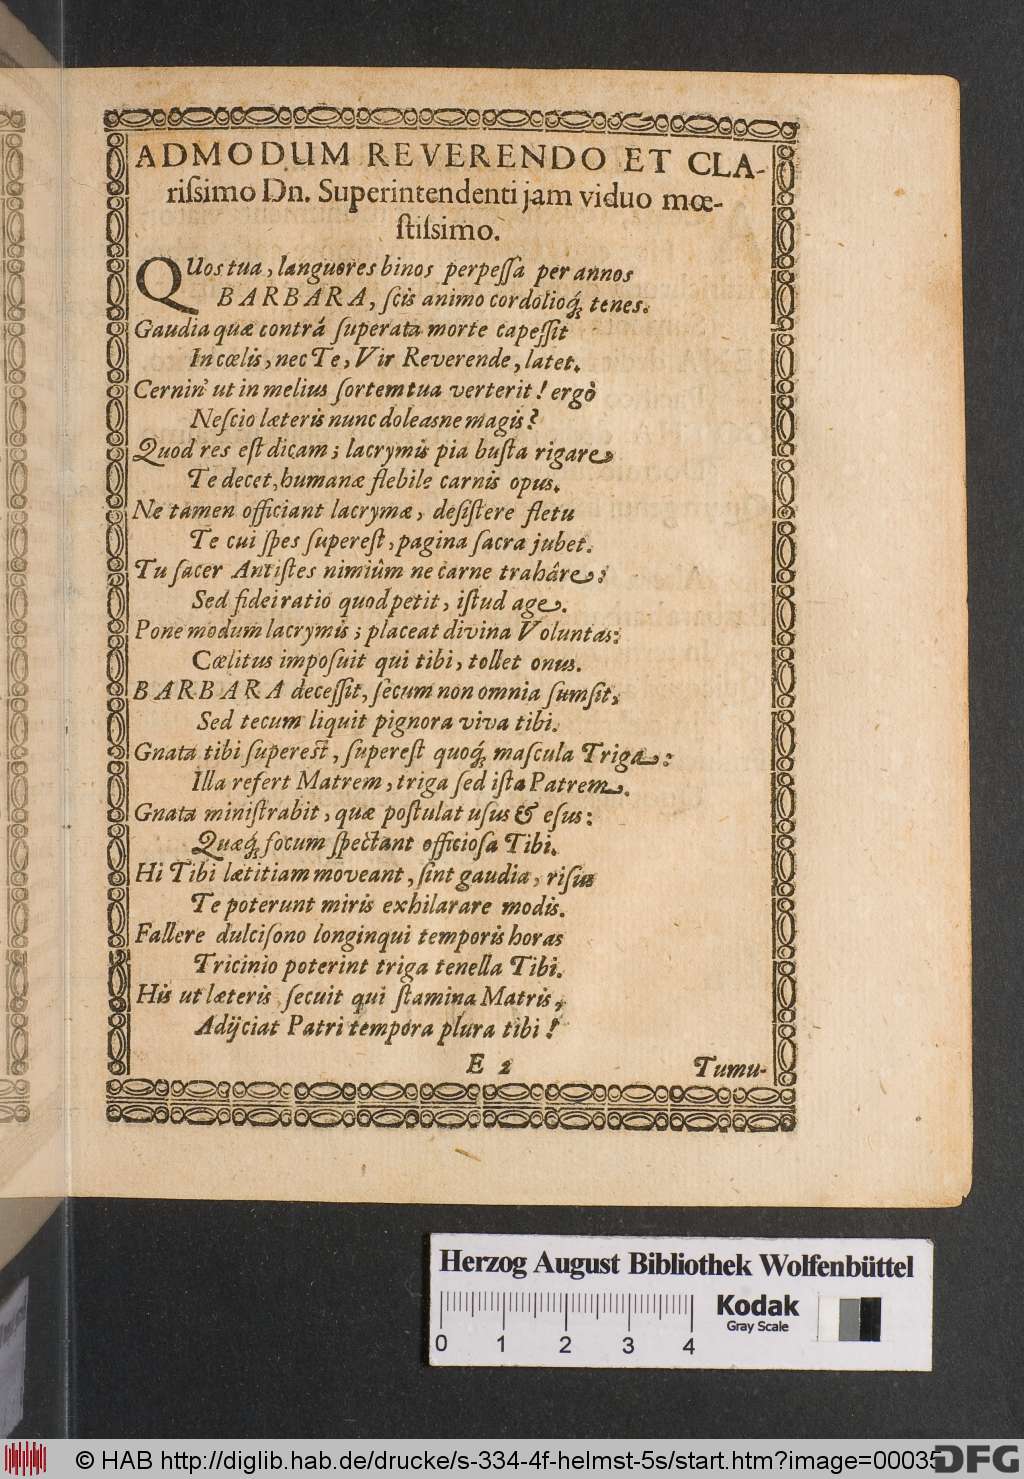 ADMODUM REVERENDO ET CLA-
riſsimo Dn. Superintendenti jam viduo mœ-
ſtiſsimo.
QUos tua, languores binos perpeſſa per annos
BARBARA, ſcis animo cordolioq́; tenes.
Gaudia quæ contrá ſuperata morte capeſſit
In cœlis, nec Te, Vir Reverende, latet.
Cernin' ut in melius ſortem tua verterit! ergò
Neſcio læteris nunc doleasne magis?
Quod res eſt dicam; lacrymis pia buſta rigare
Te decet, humanæ flebile carnis opus.
Ne tamen officiant lacrymæ, deſiſtere fletu
Te cui ſpes ſupereſt, pagina ſacra jubet.
Tu ſacer Antiſtes nimiûm ne carne trahâre:
Sed fidei ratio quod petit, iſtud age.
Pone modum lacrymis; placeat divina Voluntas:
Cœlitus impoſuit qui tibi, tollet onus.
BARBARA deceſſit, ſecum non omnia ſumſit,
Sed tecum liquit pignora viva tibi.
Gnata tibi ſupereſt, ſupereſt quoq́; maſcula Triga:
Illa refert Matrem, triga ſed iſta Patrem.
Gnata miniſtrabit, quæ poſtulat uſus & eſus:
Quæq́; focum ſpectant officioſa Tibi.
Hi Tibi lætitiam moveant, ſint gaudia, riſus
Te poterunt miris exhilarare modis.
Fallere dulciſono longinqui temporis horas
Tricinio poterint triga tenella Tibi.
His ut læteris ſecuit qui ſtamina Matris,
Adijciat Patri tempora plura tibi!
E 2 Tumu-
Herzog August Bibliothek Wolfenbüttel
Kodak
Gray Scale
0 1 2 3 4
© HAB http://diglib.hab.de/drucke/s-334-4f-helmst-5s/start.htm?image=00035
DFG